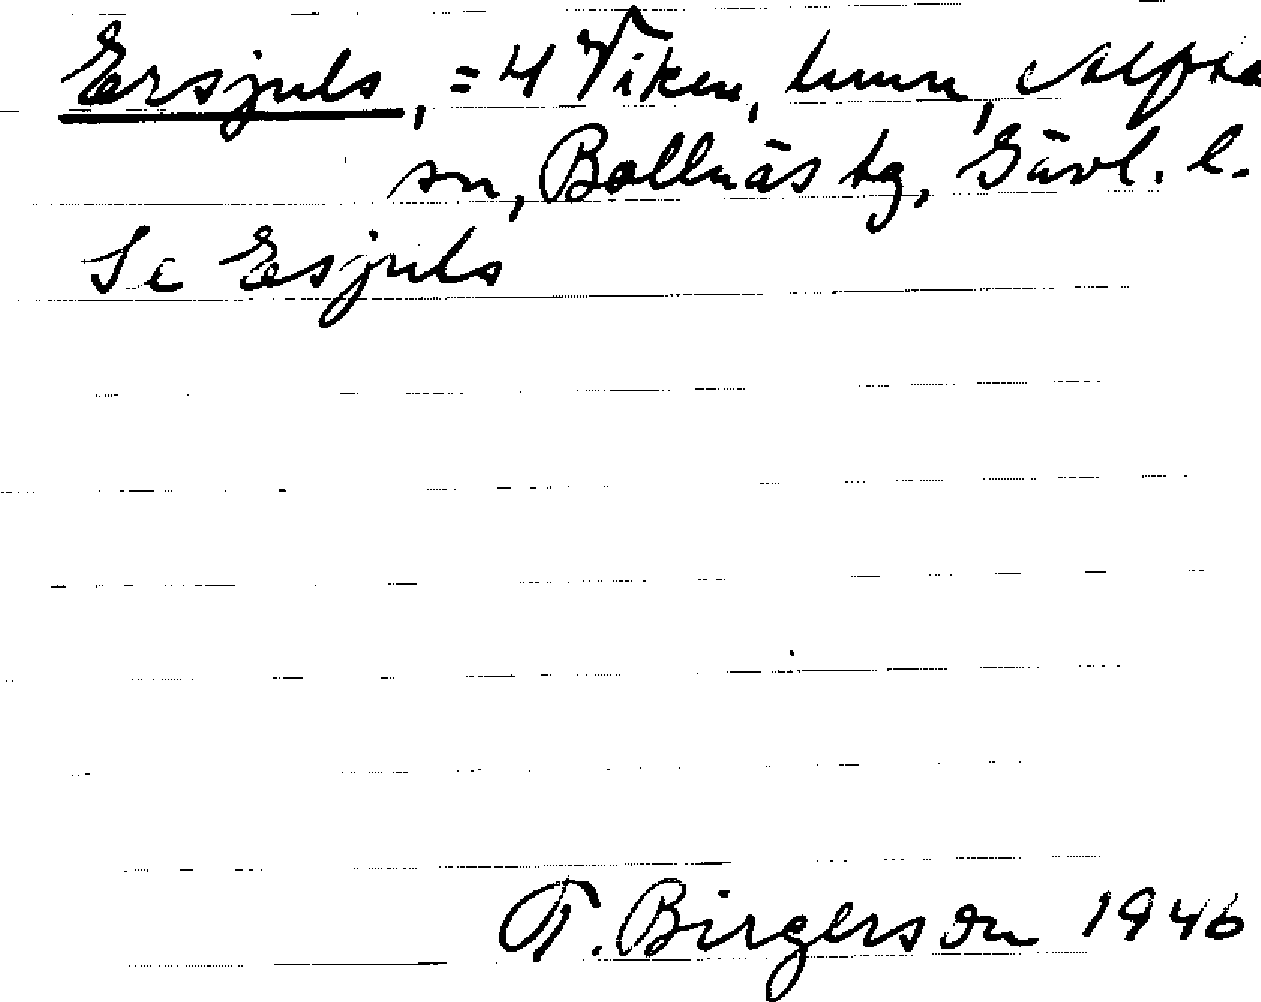 Ersjuls, = 4 Viken, hmn, Alfta
sn, Bollnäs tg, Gävl. l.
Se Esjuls
T. Birgerson 1946